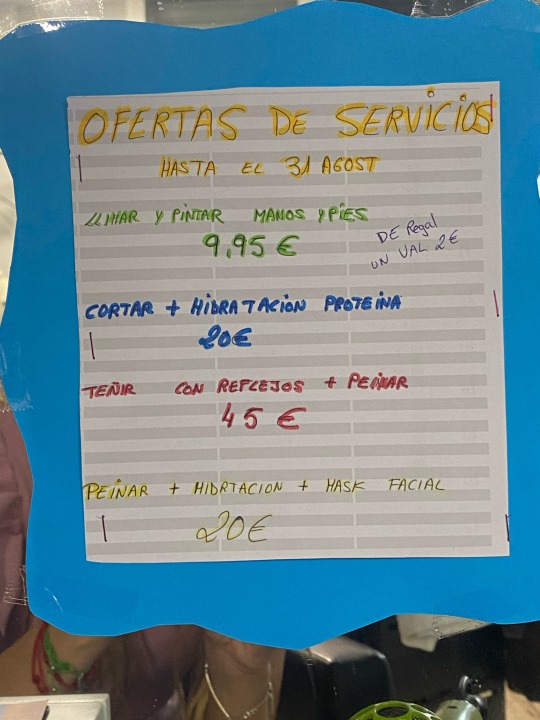 OFERTAS DE SERVICIOS
HASTA EL 31 AGOST
LLIMAR Y PINTAR MANOS Y PIES
9,95 €
DE Regal
UN VAL 2€
CORTAR + HIDRATACION PROTEINA
20€
TEÑIR CON REFLEJOS + PEINAR
45 €
PEINAR + HIDRTACION + MASK FACIAL
20€